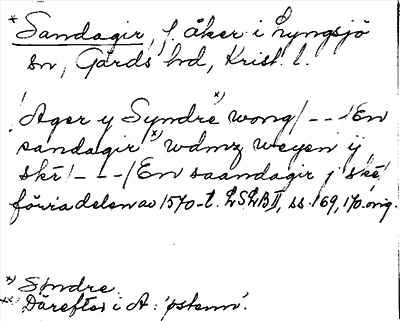 * Sandagir, f. åker i Lyngsjö
sn, Gärds hd, Krist. l.
'Ager y Syndre *) wong/ - - -/En
sandagir **) wdmz weyen ij
skē/ - - -/En saandagir j skē'
förra delen av 1570-t. LSLB II, ss. 169, 170. orig.
*) Sþndre
**) Därefter i A: